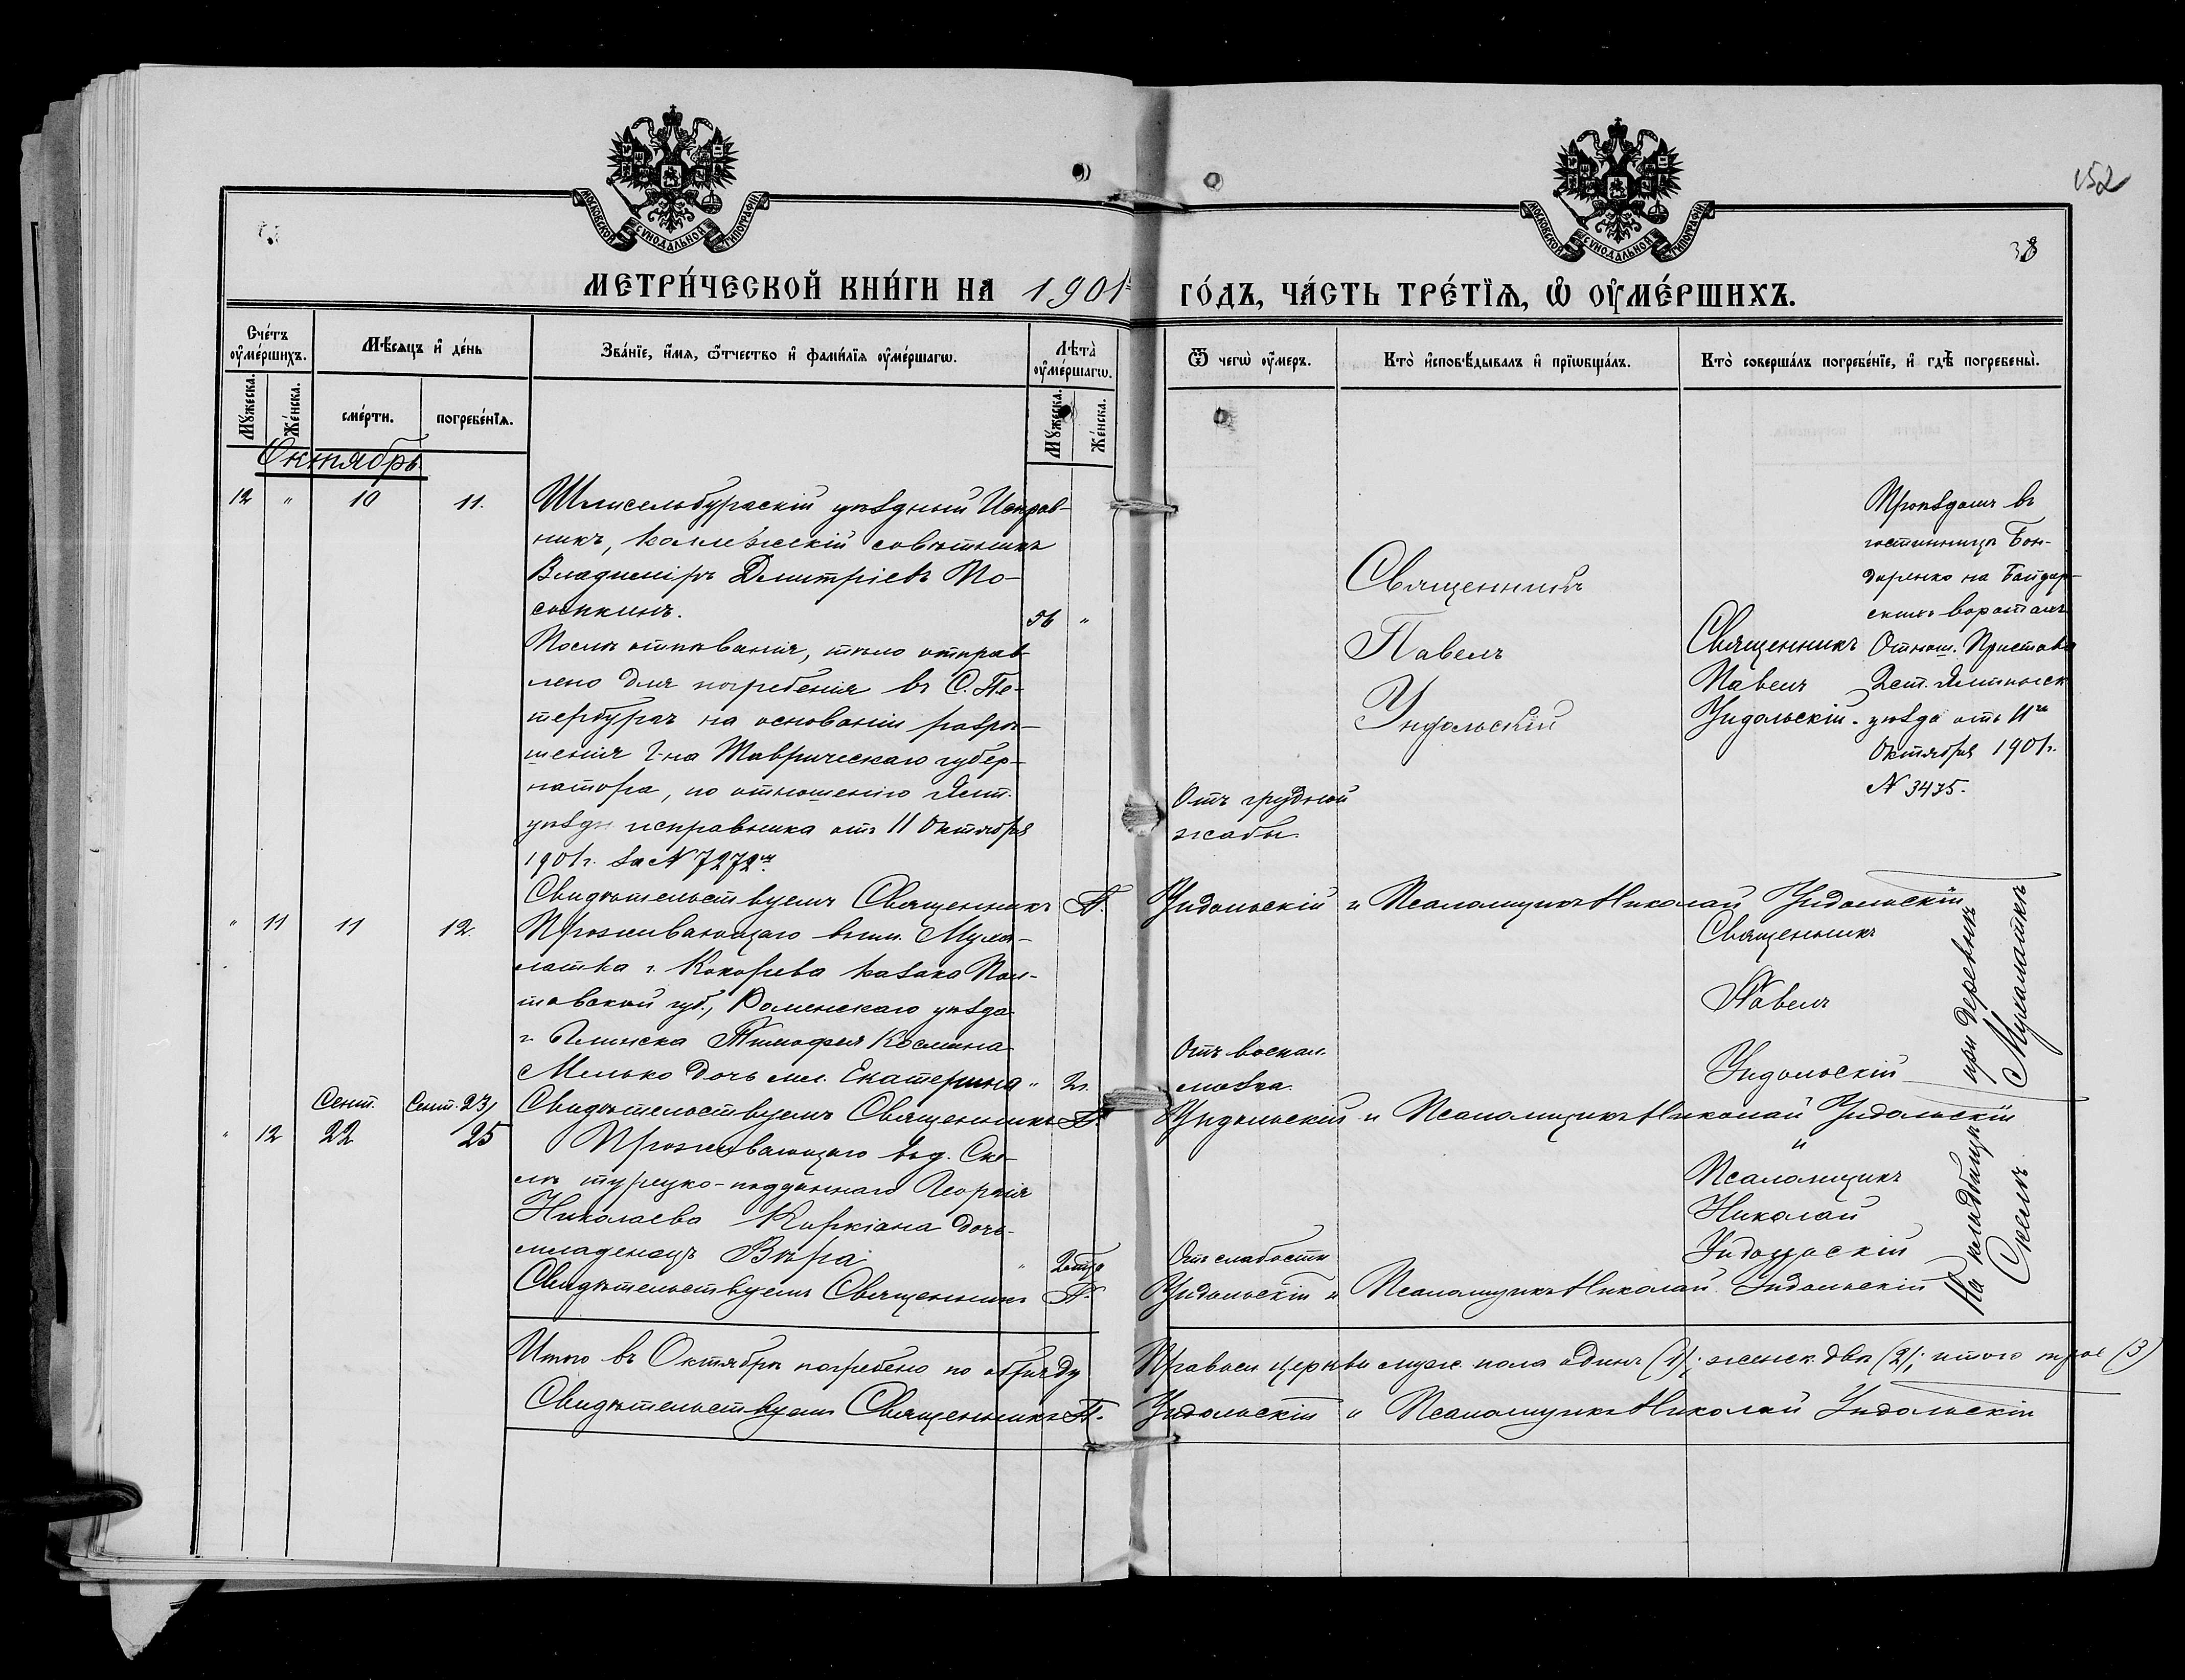 152
38
МОСКОВСКОЙ СУНОДАЛЬНОЙ ТИПОГРАФІИ
МОСКОВСКОЙ СУНОДАЛЬНОЙ ТИПОГРАФІИ
МЕТРИ́ЧЕСКОЙ КНИ́ГИ НА 1901й ГО́ДЪ, ЧА́СТЬ ТРЕ́ТЇѦ, Ѡ҆ ОУ҆МЕ́РШИХЪ.
Сче́тъ оу҆ме́ршихъ.
Мѣ́сѧцъ и҆ де́нь
Зва́нїе, и҆́мѧ, ѻ҆́тчество и҆ фами́лїѧ оу҆ме́ршагѡ.
Лѣ́та оу҆ме́ршагѡ.
Ѿ чегѡ̀ оу҆́меръ.
Кто̀ и҆сповѣ́дывалъ и҆ прїѡбща́лъ.
Кто̀ соверша́лъ погребе́нїе, и҆ гдѣ̀ погребены̀.
Мꙋ́жеска.
Же́нска.
сме́рти.
погребе́нїѧ.
Мꙋ́жеска.
Же́нска.
Октябрь
12 " 10 11.
Шлисельбургскій уѣздный Исправ-
никъ, коллежскій совѣтникъ
Владиміръ Дмитріевъ По-
соткинъ. 56 "
Послѣ отпѣванія, тѣло отправ-
лено для погребенія въ С. Пе-
тербургъ на основаніи разрѣ-
шенія Г-на Таврическаго губер-
натора, по отношенію Ялт.
уѣздн исправника отъ 11 Октября
1901г. за № 7272мъ
Отъ грудной
жабы.
Священникъ
Павелъ
Ундольскій
Священникъ
Павелъ
Ундольскій.
Проѣздомъ въ
гостинницѣ Бон-
даренко на Байдар-
скихъ воротахъ
Отнош. Пристава
2 ст. Ялтинск.
уѣзда отъ 11го
Октября 1901г.
№ 3475.
Свидѣтельствуемъ Священникъ П. Ундольскій и Псаломщикъ Николай Ундольскій
" 11 11 12.
Проживающаго въ им. Муха-
латка г. Кокорева казака Пол-
тавской губ., Роменскаго уѣзда
г. Глинска Тимофея Космина
Мелько дочь мл. Екатерина " 2г.
Отъ воспал.
мозга.
Священникъ
Павелъ
Ундольскій
при деревнѣ
Мухалаткѣ
Свидѣтельствуемъ Священникъ П. Ундольскій и Псаломщикъ Николай Ундольскій
" 12 Сент. 22 Сент. 23/25
Проживающаго въ д. Ске-
лѣ турецко-подданнаго Георгія
Николаева Киркіана дочь
младенецъ Вѣра "
Отъ слабости
и
Псаломщикъ
Николай
Ундольскій
На кладбищѣ
Скелѣ
Свидѣтельствуемъ Священникъ П. Ундольскій и Псаломщикъ Николай Ундольскій
Итого въ Октябрѣ погребено по обряду Правосл церкви муж. пола одинъ (1); женск. двѣ (2); итого трое (3)
Свидѣтельствуемъ Священникъ П. Ундольскій и Псаломщикъ Николай Ундольскій